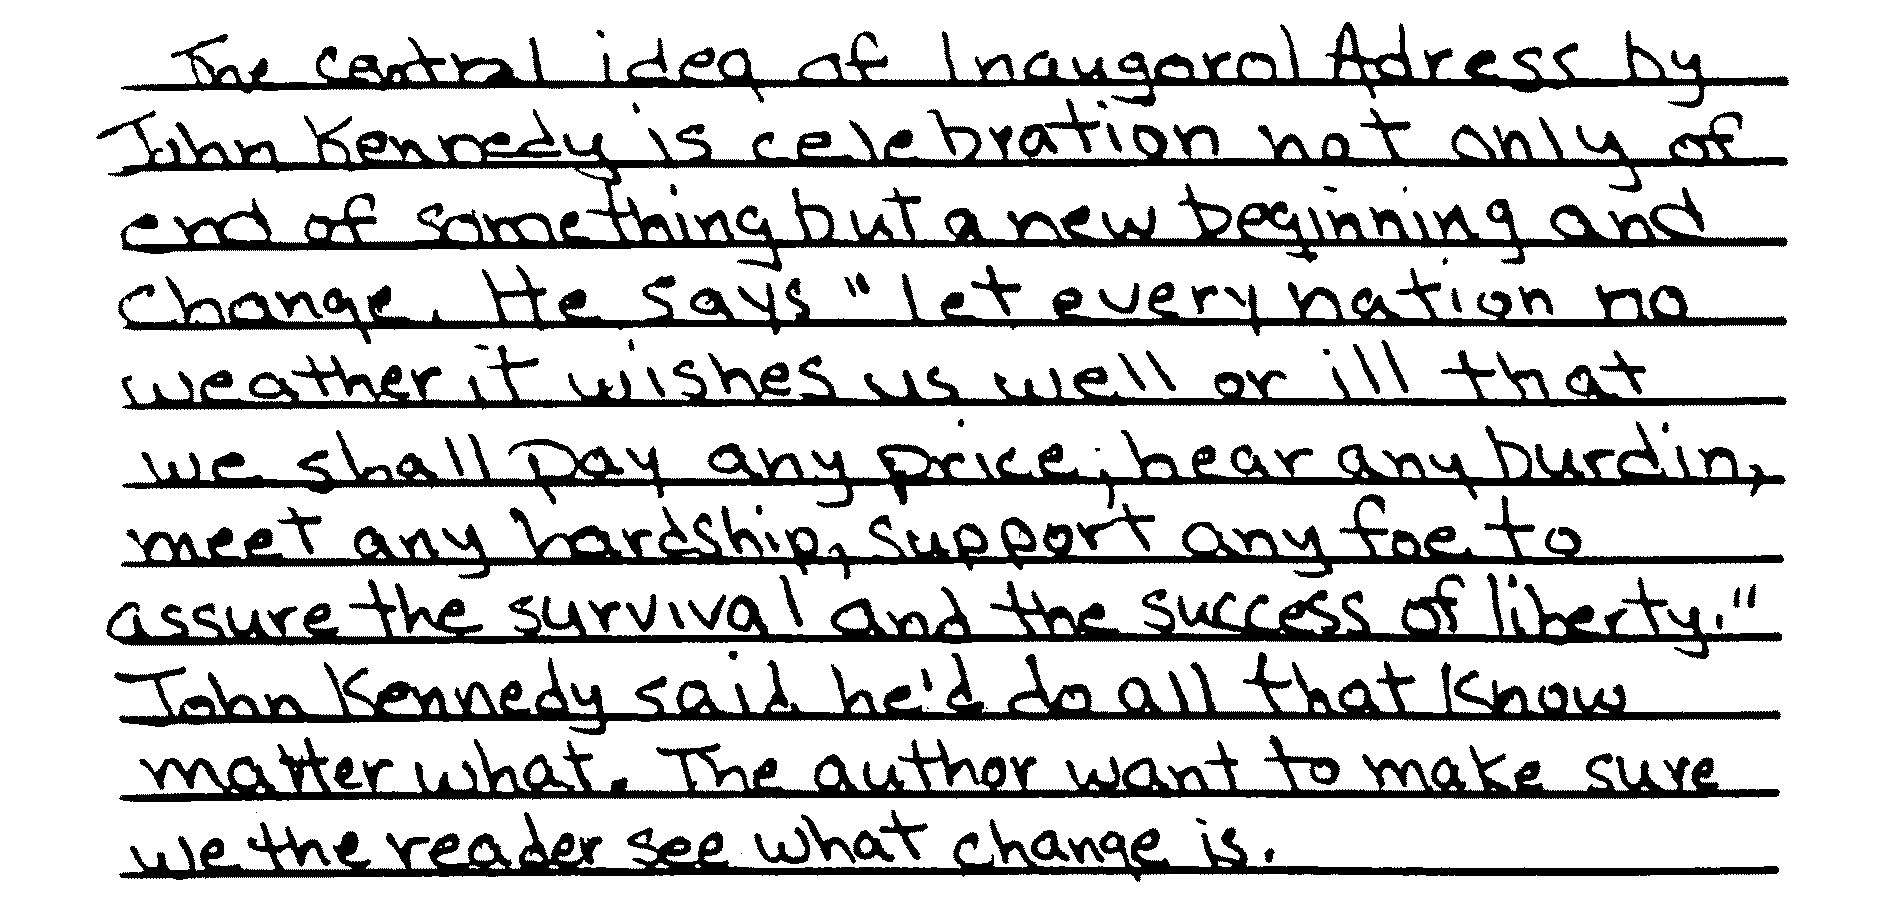 The central idea of Inaugorol Adress by
John Kennedy is celebration not only of
end of something but a new beginning and
change. He says "let every nation no
weather it wishes us well or ill that
we shall pay any price, bear any burdin,
meet any hardship, support any foe to
assure the survival and the success of liberty."
John Kennedy said he'd do all that know
matter what. The author want to make sure
we the reader see what change is.